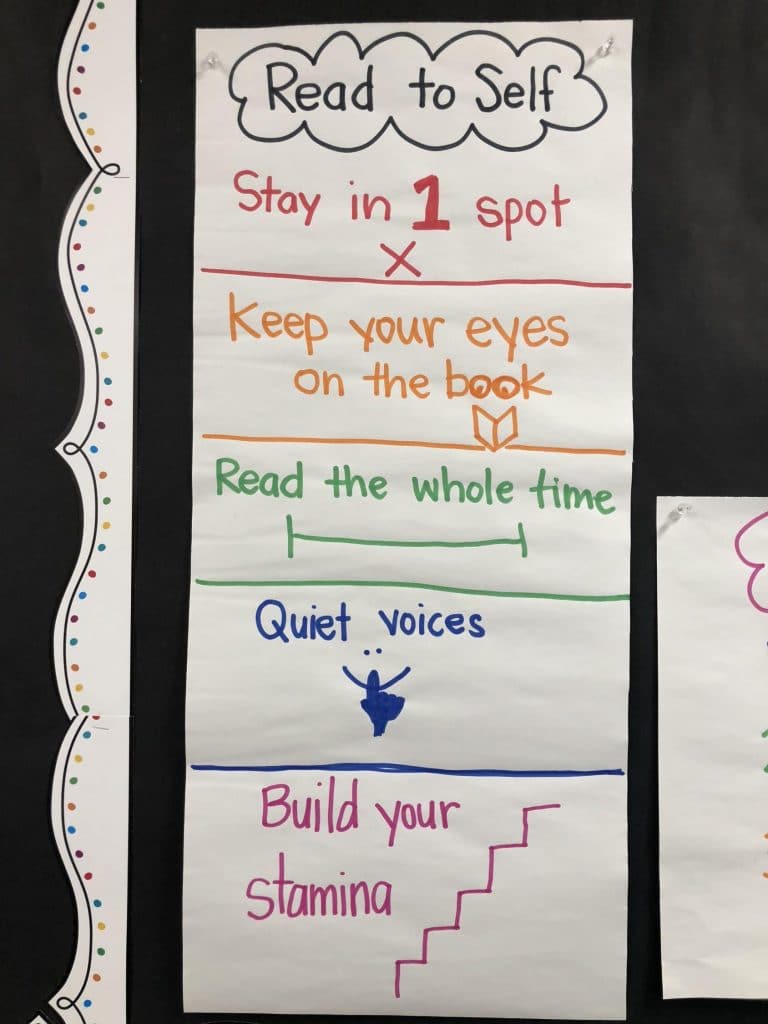 Read to Self
Stay in 1 spot
Keep your eyes
on the book
Read the whole time
Quiet voices
Build your
stamina